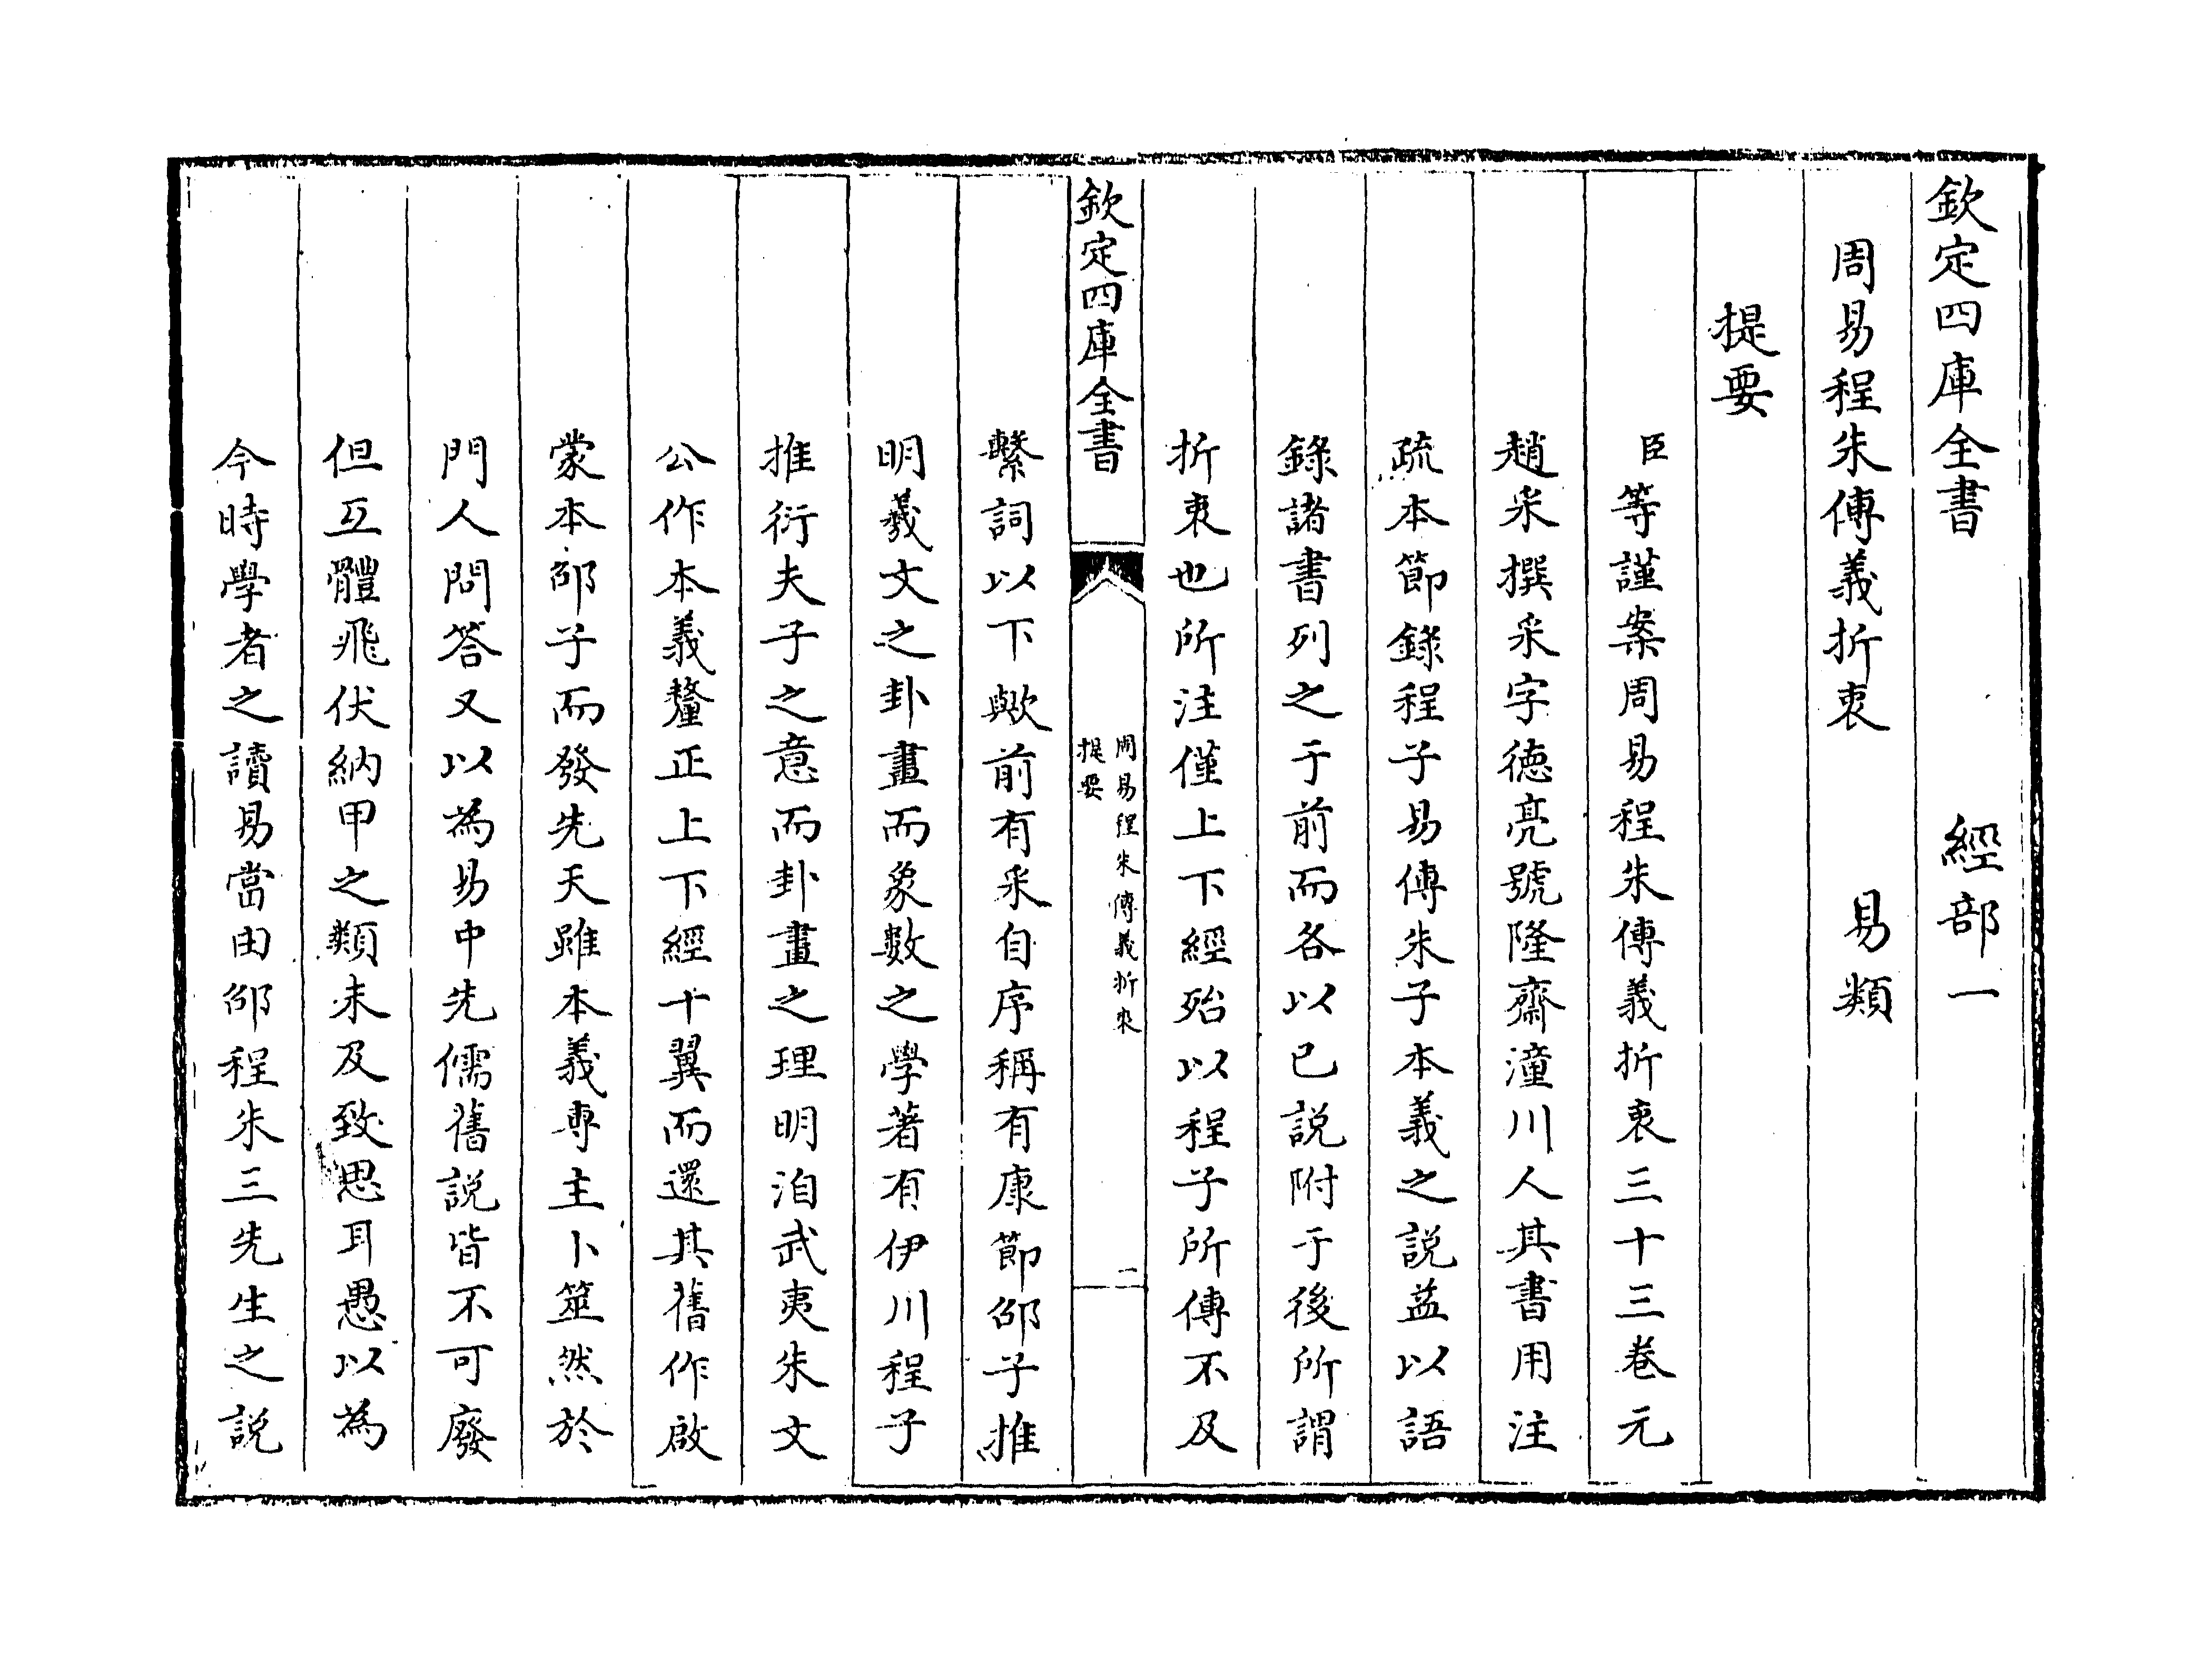 欽定四庫全書　經部一
周易程朱傳義折衷　易類
提要
臣等謹案周易程朱傳義折衷三十三卷元
趙采撰采字徳亮號隆齋潼川人其書用注
疏本節錄程子易傳朱子本義之説益以語
錄諸書列之于前而各以已説附于後所謂
折衷也所注僅上下經殆以程子所傳不及
欽定四庫全書
周易程朱傳義折衷
提要
二
繫詞以下歟前有采自序稱有康節邵子推
明羲文之卦畫而象數之學著有伊川程子
推衍夫子之意而卦畫之理明洎武夷朱文
公作本義釐正上下經十翼而還其舊作啟
蒙本邵子而發先天雖本義專主卜筮然於
門人問答又以為易中先儒舊説皆不可廢
但互體飛伏納甲之類未及致思耳愚以為
今時學者之讀易當由邵程朱三先生之説